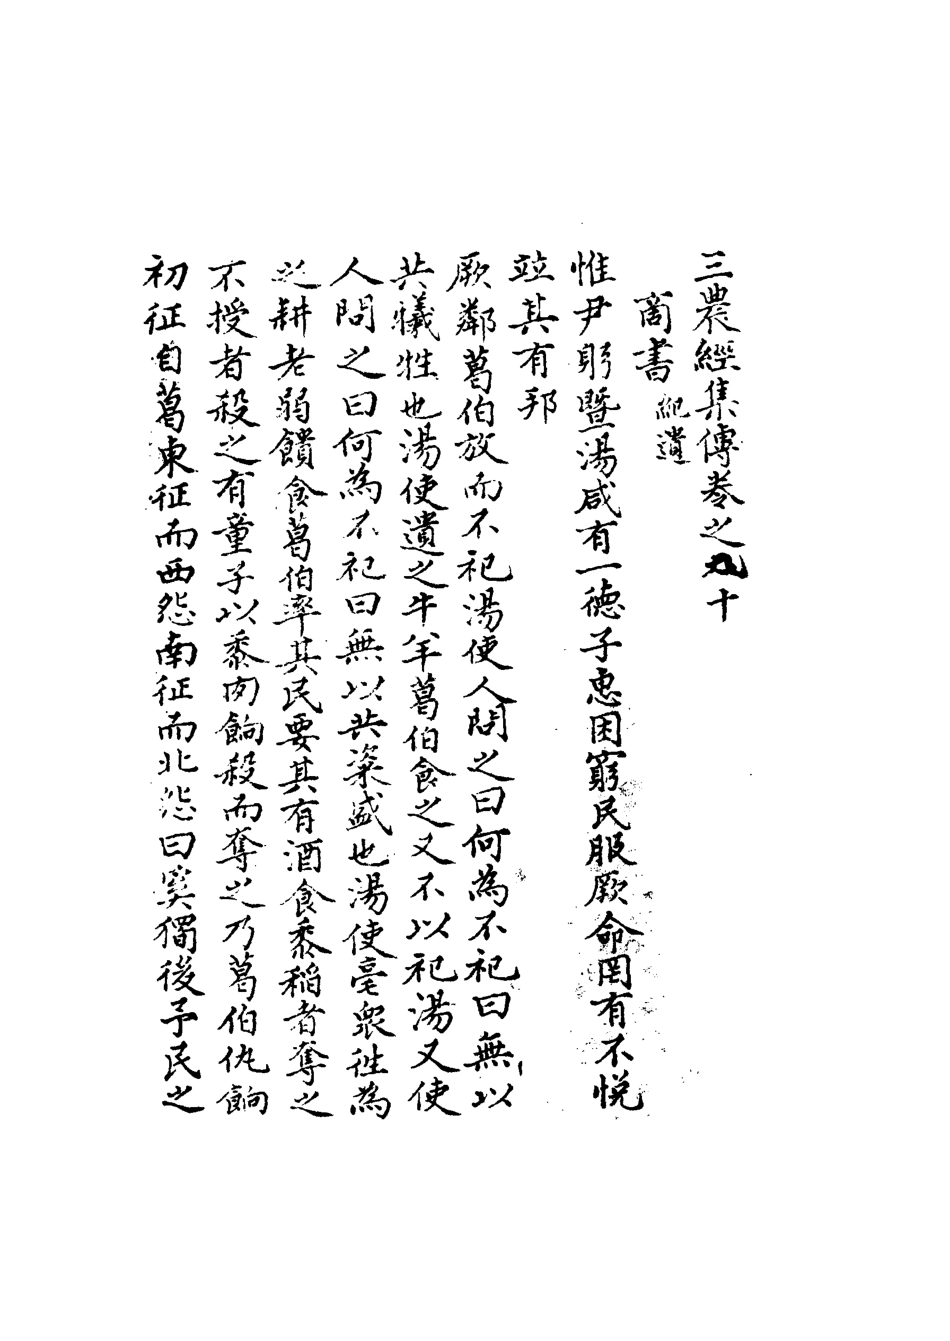 三農經集傳卷之九十
商書 紀遺
惟尹躬暨湯咸有一德子惠困窮民服厥命罔有不悅
竝其有邦
厥鄰葛伯放而不祀湯使人問之曰何為不祀曰無以
共犧牲也湯使遺之牛羊葛伯食之又不以祀湯又使
人問之曰何為不祀曰無以共粢盛也湯使亳衆往為
之耕老弱饋食葛伯率其民要其有酒食黍稻者奪之
不授者殺之有童子以黍肉餉殺而奪之乃葛伯仇餉
初征自葛東征而西怨南征而北怨曰奚獨後予民之